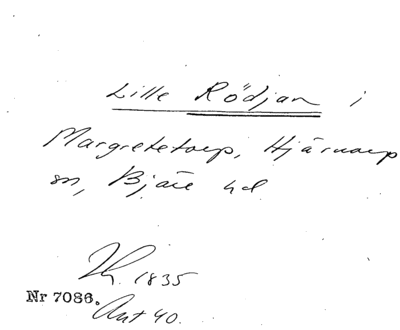 Lille Rödjan i
Margretetorp, Hjärnarp
sn, Bjäre hd
Th. 1835
Nr 7086.
Ant 40.